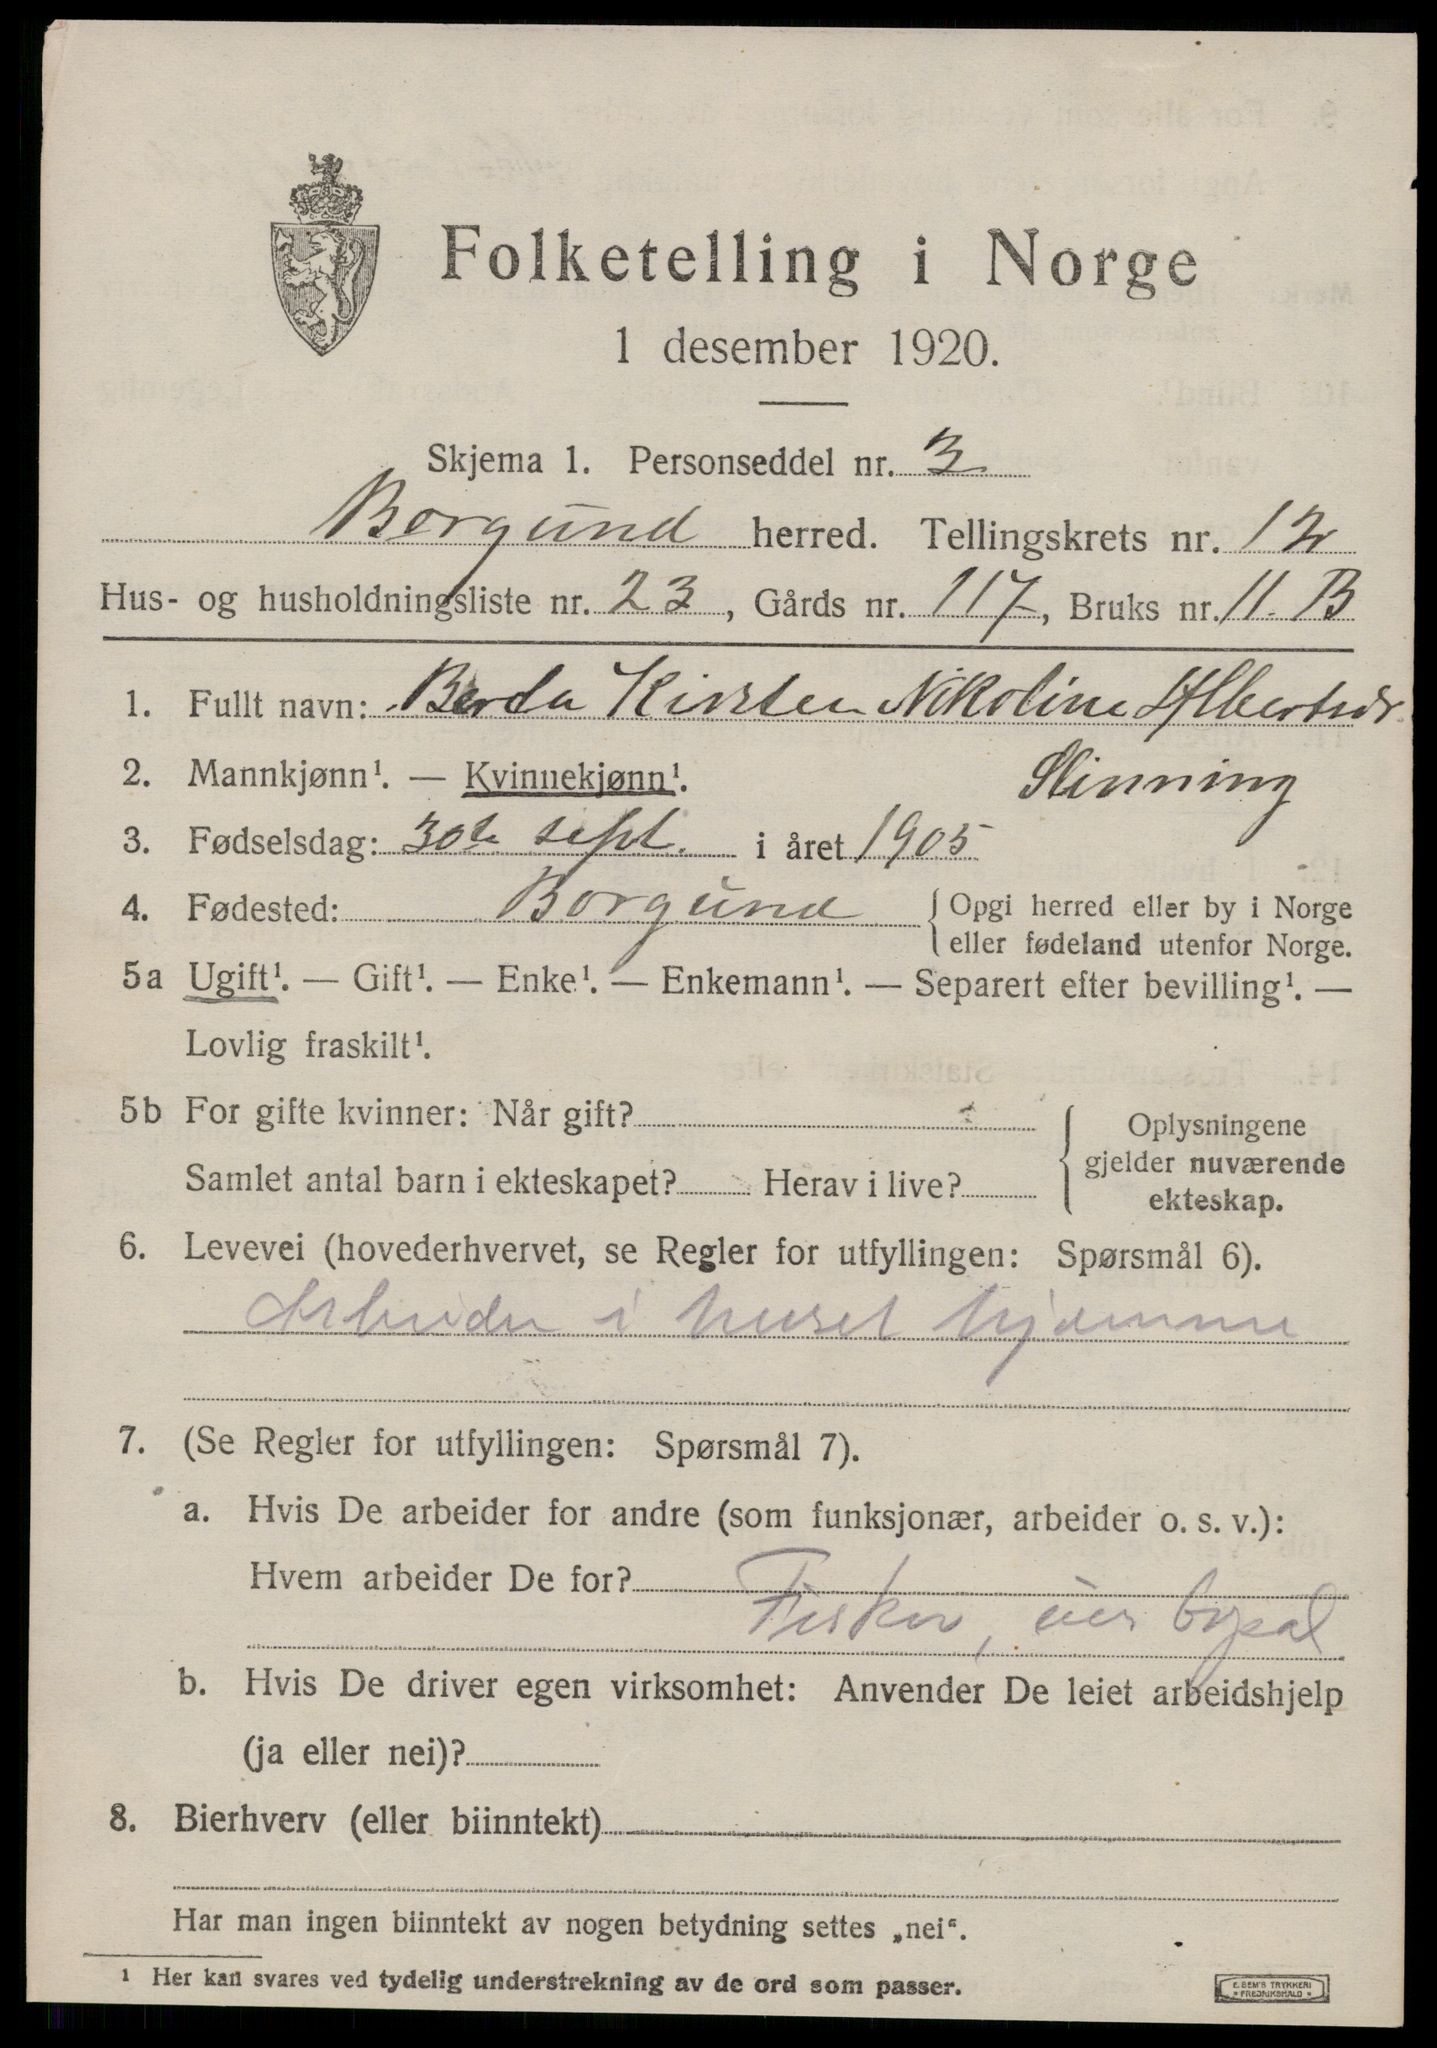 Folketelling i Norge
1 desember 1920.
Skjema 1. Personseddel nr. 3
Borgund herred. Tellingskrets nr. 12
Hus- og husholdningsliste nr. 23, Gårds nr. 117, Bruks nr. 11. B
1. Fullt navn: Berta Kirsten Nikoline Albertsdr
2. Mannkjønn¹. — Kvinnekjønn¹. Slinning
3. Fødselsdag: 30te sept. i året 1905
4. Fødested: Borgund { Opgi herred eller by i Norge
eller fødeland utenfor Norge.
5a Ugift¹. — Gift¹. — Enke¹. — Enkemann¹. — Separert efter bevilling¹. —
Lovlig fraskilt¹.
5b For gifte kvinner: Når gift?
Samlet antal barn i ekteskapet? Herav i live?
{ Oplysningene
gjelder nuværende
ekteskap.
6. Levevei (hovederhvervet, se Regler for utfyllingen: Spørsmål 6).
Arbeider i huset hjemme
7. (Se Regler for utfyllingen: Spørsmål 7).
a. Hvis De arbeider for andre (som funksjonær, arbeider o. s. v.):
Hvem arbeider De for?
Fisker,
b. Hvis De driver egen virksomhet: Anvender De leiet arbeidshjelp
(ja eller nei)?
8. Bierhverv (eller biinntekt)
Har man ingen biinntekt av nogen betydning settes „nei“.
¹ Her kan svares ved tydelig understrekning av de ord som passer.
E. SEM'S TRYKKERI
* FREDRIKSHALD *